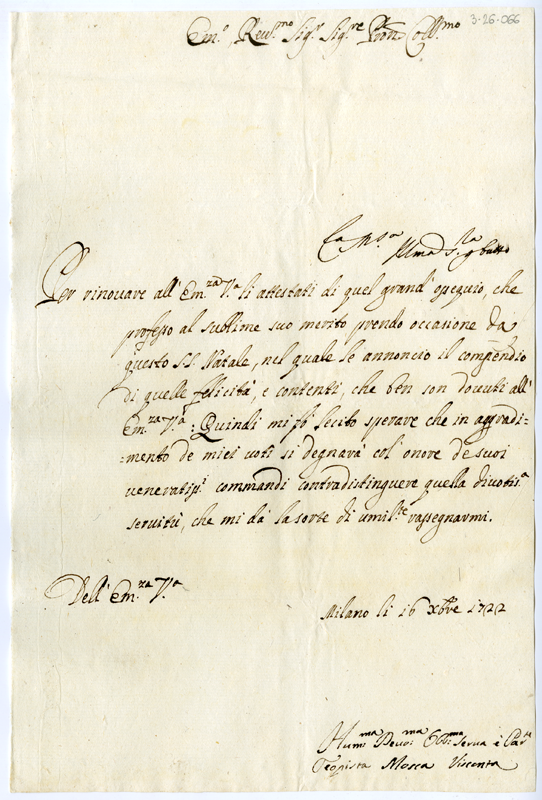 3-26-066
Em.º Rev.mo Sig.r Sig.re Pron Coll.mo
Per rinovare all' Em.za V.a li attestati di quel grand' ossequio, che
professo al sublime suo merito prendo occasione da
questo SS. Natale, nel quale le annoncio il compendio
di quelle felicità, e contenti, che ben son dovuti all'
Em.za V.a: Quindi mi fò lecito sperare che in aggradi=
=mento de miei voti si degnarà col' onore de suoi
veneratis.i commandi contradistinguere quella divotis.a
servitù, che mi dà la sorte di umil.te rassegnarmi.
Dell' Em.za V.a
Milano li 16 Xbre 1722
Hum.ma Devo.ma Obb.ma Serva e Par.te
Teopista Mosca Visconta